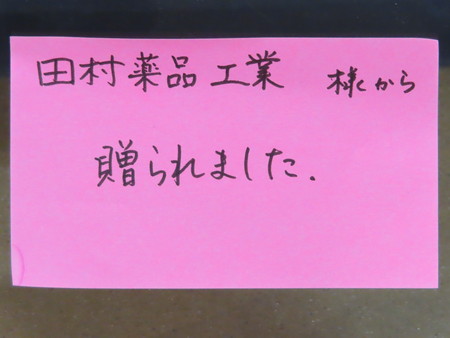 田村薬品工業 様から
贈られました.